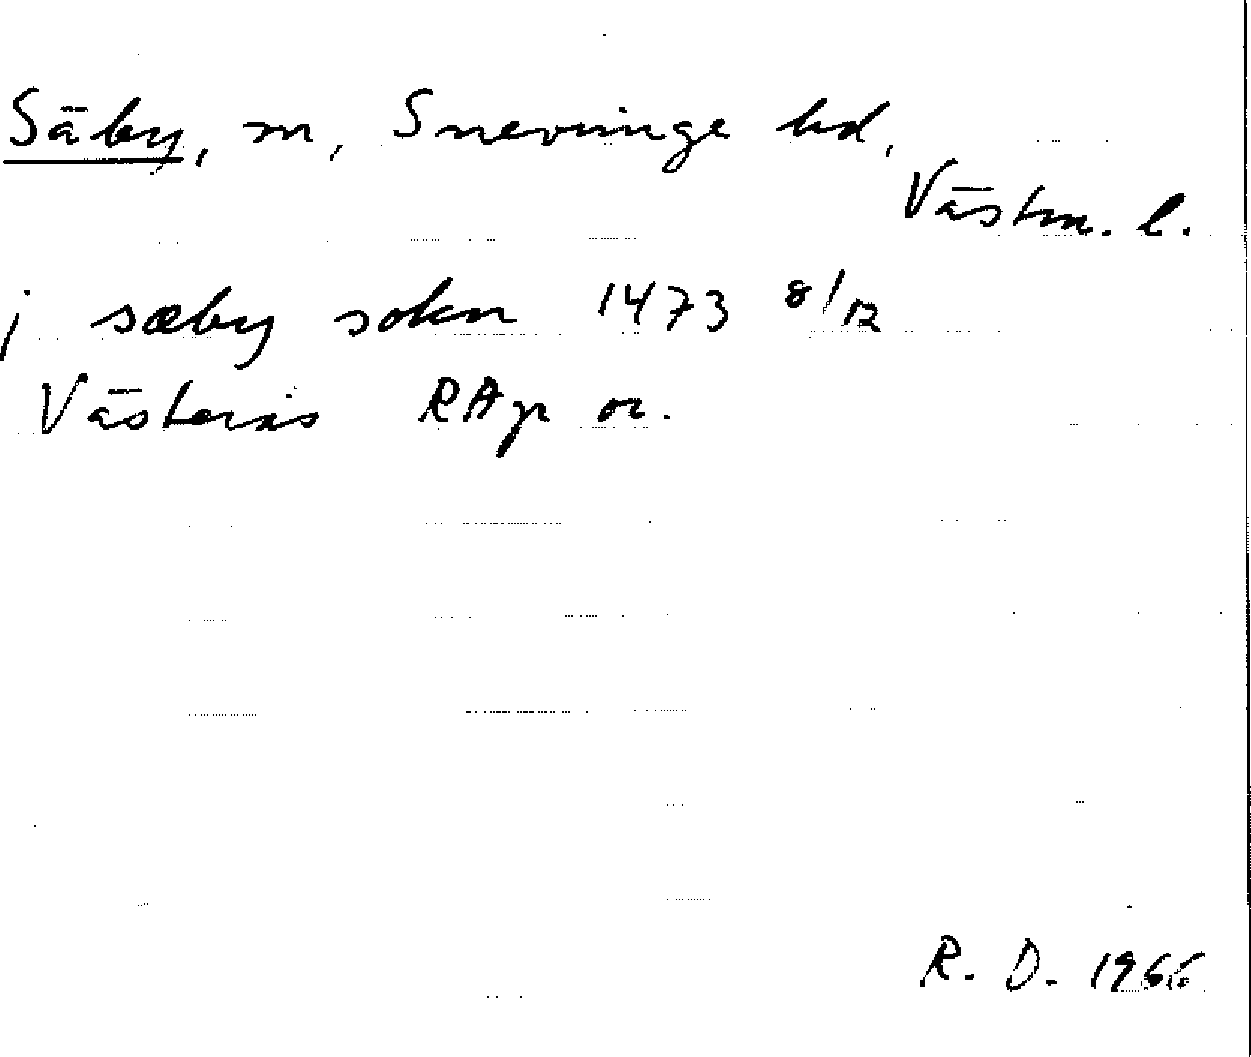 Säby, sn, Snevringe hd,
Västm. l.
j sæby sokn 1473 8/12
Västerås RAp or.
R. D. 1966